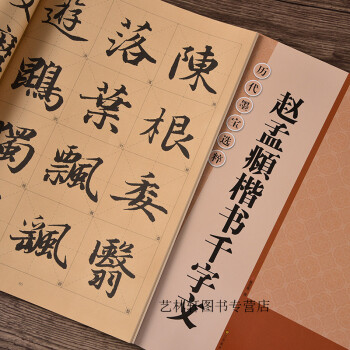 陳根委翳
落葉飄
遊鵾獨
历代墨宝选粹
赵孟頫楷书千字文
艺林轩图书专营店